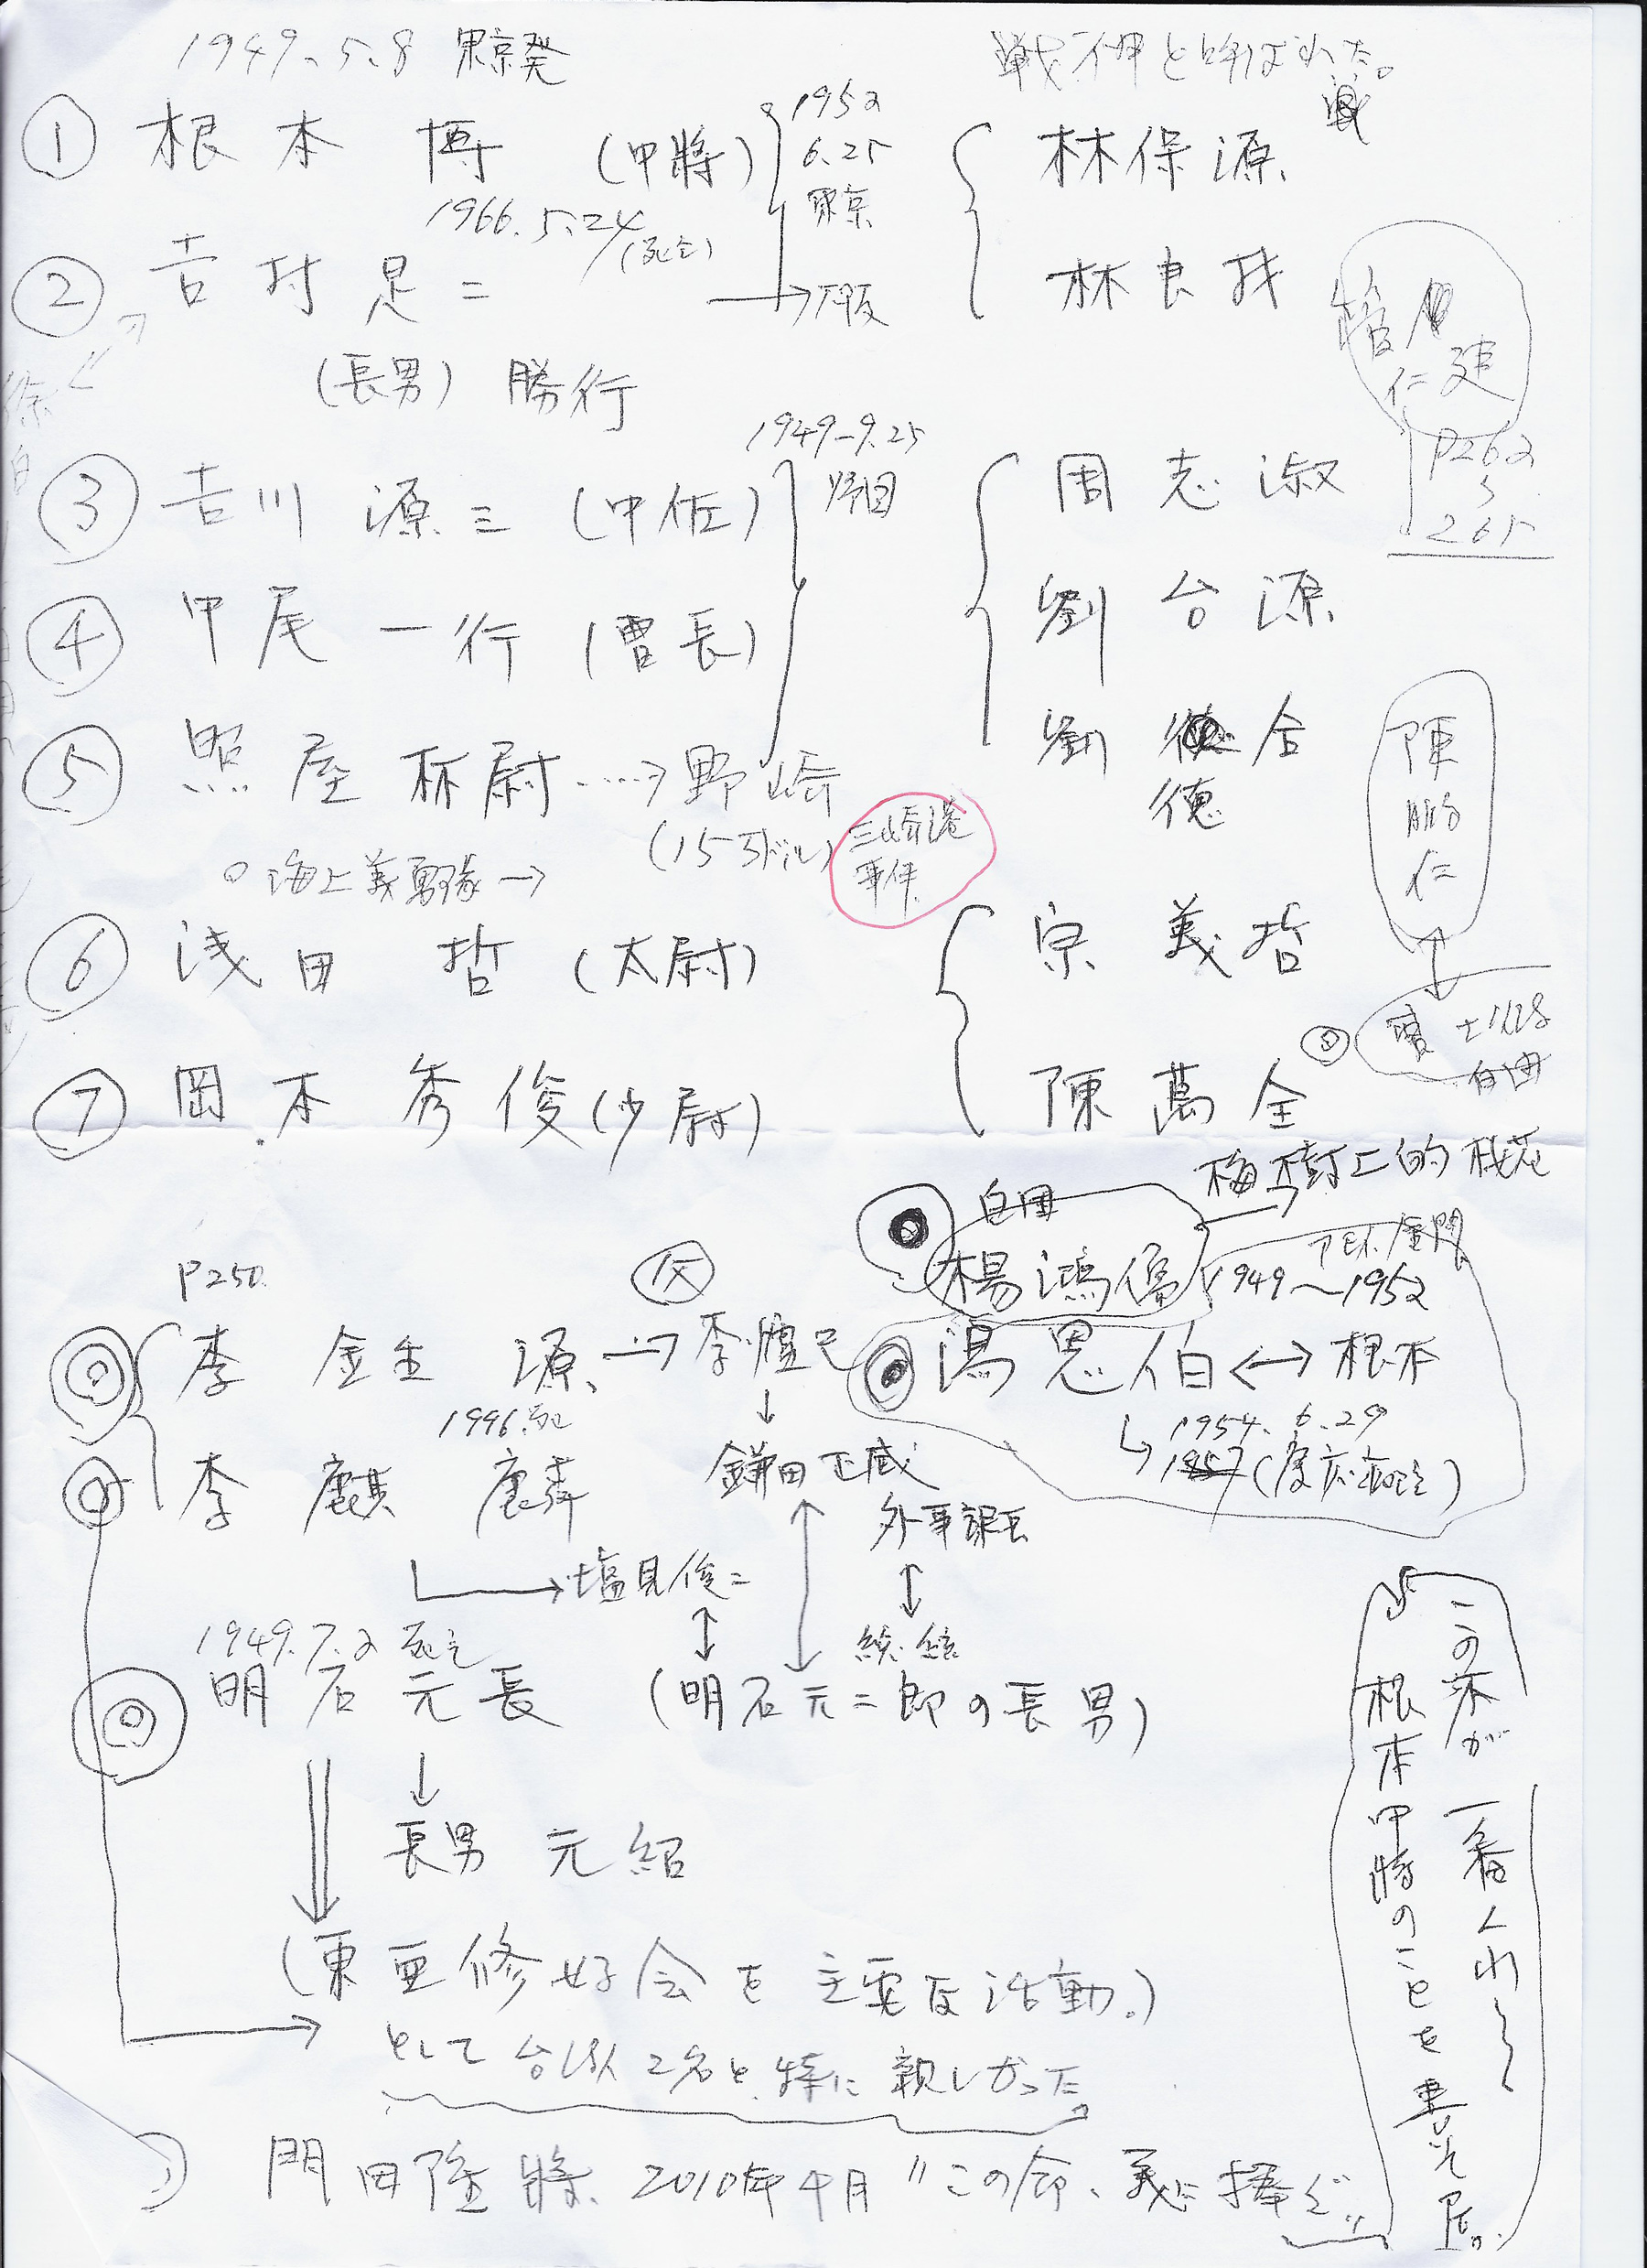 1949.5.8 東京発
戦神と呼ばれた。
① 根本 博 (中將)
1952
6.25
東京
林保源
1966.5.24
(死亡)
② 吉村 是二
→大阪
林良材
(長男) 勝行
P262
〜
265
1949-9.25
帰国
③ 吉川 源三 (中佐)
周志淑
④ 中尾 一行 (曹長)
劉台源
⑤ 照屋 林尉 …→ 野崎
劉 合
德
陳
鵬
仁
(15万ドル)
三崎港
事件
○ 海上義勇隊→
⑥ 浅田 哲 (大尉)
宗義哲
⑦ 岡本 秀俊 (少尉)
陳萬全
梅樹上的桜花
自由
P250.
仮
1949〜1952
李 金生 源 →
湯恩伯 ↔ 根本
1996.死
1954.6.29
1957
李 麒麟
鎌田正威
外事課長
→ 塩見俊二
1949.7.2 死亡
明石元長 (明石元二郎の長男)
長男 元紹
(東亜修好会を主要な活動。)
として台湾人2名と特に親しかった。
この本が一番くわしく
根本中將のことを書いて居。
門田隆將、2010年4月 "この命、義に捧ぐ"